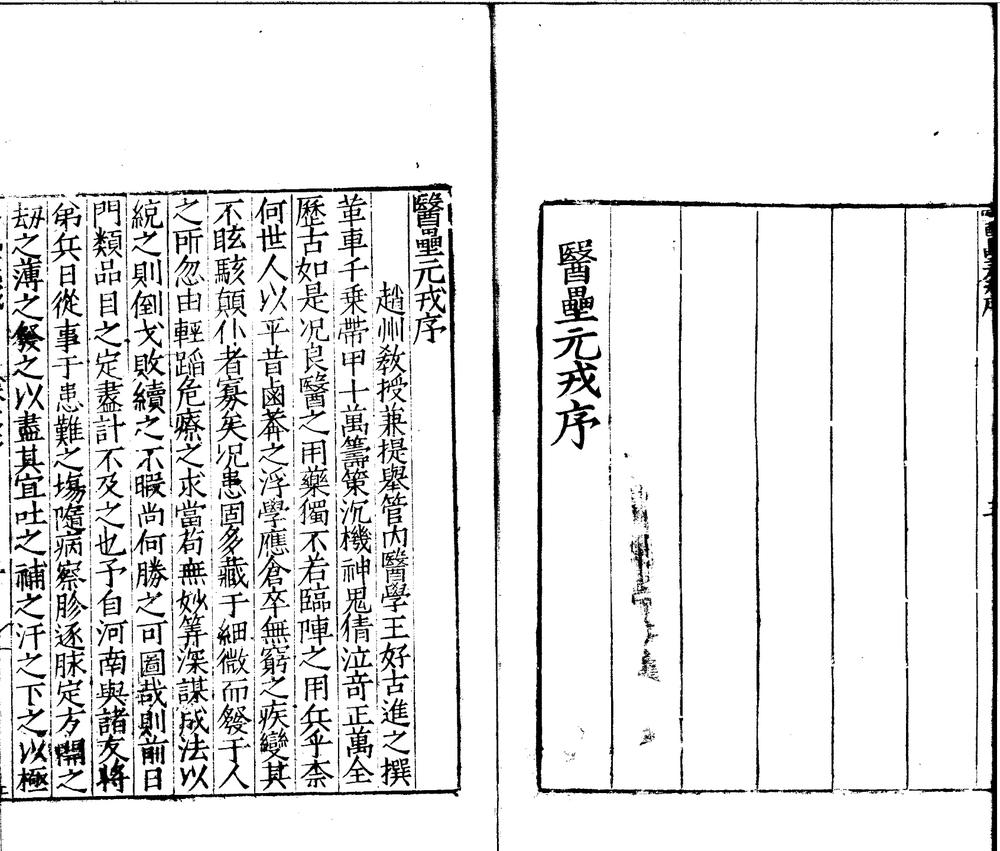 醫壘元戎序
醫壘元戎序
趙州教授兼提舉管内醫學王好古進之撰
革車千乗帶甲十萬籌策沉機神鬼猜泣竒正萬全
歷古如是况良醫之用藥獨不若臨陣之用兵乎柰
何世人以平昔鹵莾之浮學應倉卒無窮之疾變其
不眩駭顛仆者寡矣况患固多藏于細微而發于人
之所忽由輕蹈危療之求當苟無妙筭深謀成法以
統之則倒戈敗績之不暇尚何勝之可圖哉則前日
門類品目之定盡計不及之也予自河南與諸友將
弟兵日從事于患難之塲隨病察胗逐脉定方開之
劫之薄之發之以盡其宜吐之補之汗之下之以極